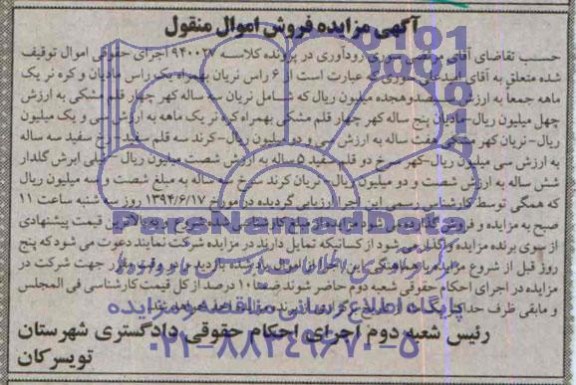 آگهی مزایده فروش اموال منقول
حسب تقاضای آقای مرتضی نوری رودآوری در پرونده کلاسه ۹۴۰۰۲۷ اجرای حقوقی اموال توقیف
شده متعلق به آقای اسدعلی نوری که عبارت است از ۶ راس نریان بهمراه یک راس مادیان و کره نر یک
ماهه جمعاً به ارزش سیصد و هجده میلیون ریال که شامل نریان سه ساله کهر چهار قلم مشکی به ارزش
چهل میلیون ریال-مادیان پنج ساله کهر چهار قلم مشکی بهمراه کره نر یک ماهه به ارزش سی و یک میلیون
ریال-نریان کهر هفت ساله به ارزش سی و دو میلیون ریال-کرند سه قلم سفید سه ساله
به ارزش سی میلیون ریال-کهر سرخ دو قلم سفید ۵ ساله به ارزش شصت میلیون ریال ابرش گلدار
شش ساله به ارزش شصت و دو میلیون ریال-نریان کرند سرخ سه ساله به مبلغ شصت و سه میلیون ریال
که همگی توسط کارشناس رسمی این اجرا ارزیابی گردیده در مورخ ۱۳۹۴/۶/۱۷ روز سه شنبه ساعت ۱۱
صبح به مزایده و فروش گذاشته می شود مزایده از مبلغ کارشناسی شروع بالاترین قیمت پیشنهادی
از سوی برنده مزایده واگذار می شود از کسانیکه تمایل دارند در مزایده شرکت نمایند دعوت می شود که پنج
روز قبل از شروع مزایده با هماهنگی این اجرا از اموال یاد شده بازدید و در وقت مقرر جهت شرکت در
مزایده در اجرای احکام حقوقی شعبه دوم حاضر شوند ضمناً ۱۰ درصد از کل قیمت کارشناسی فی المجلس
و مابقی ظرف حداکثر از برنده مزایده
رئیس شعبه دوم اجرای احکام حقوقی دادگستری شهرستان
تویسرکان
ParsNamadData
پایگاه اطلاع رسانی مناقصه و مزایده
۰۲۱-۸۸۳۴۹۶۷۰-۵